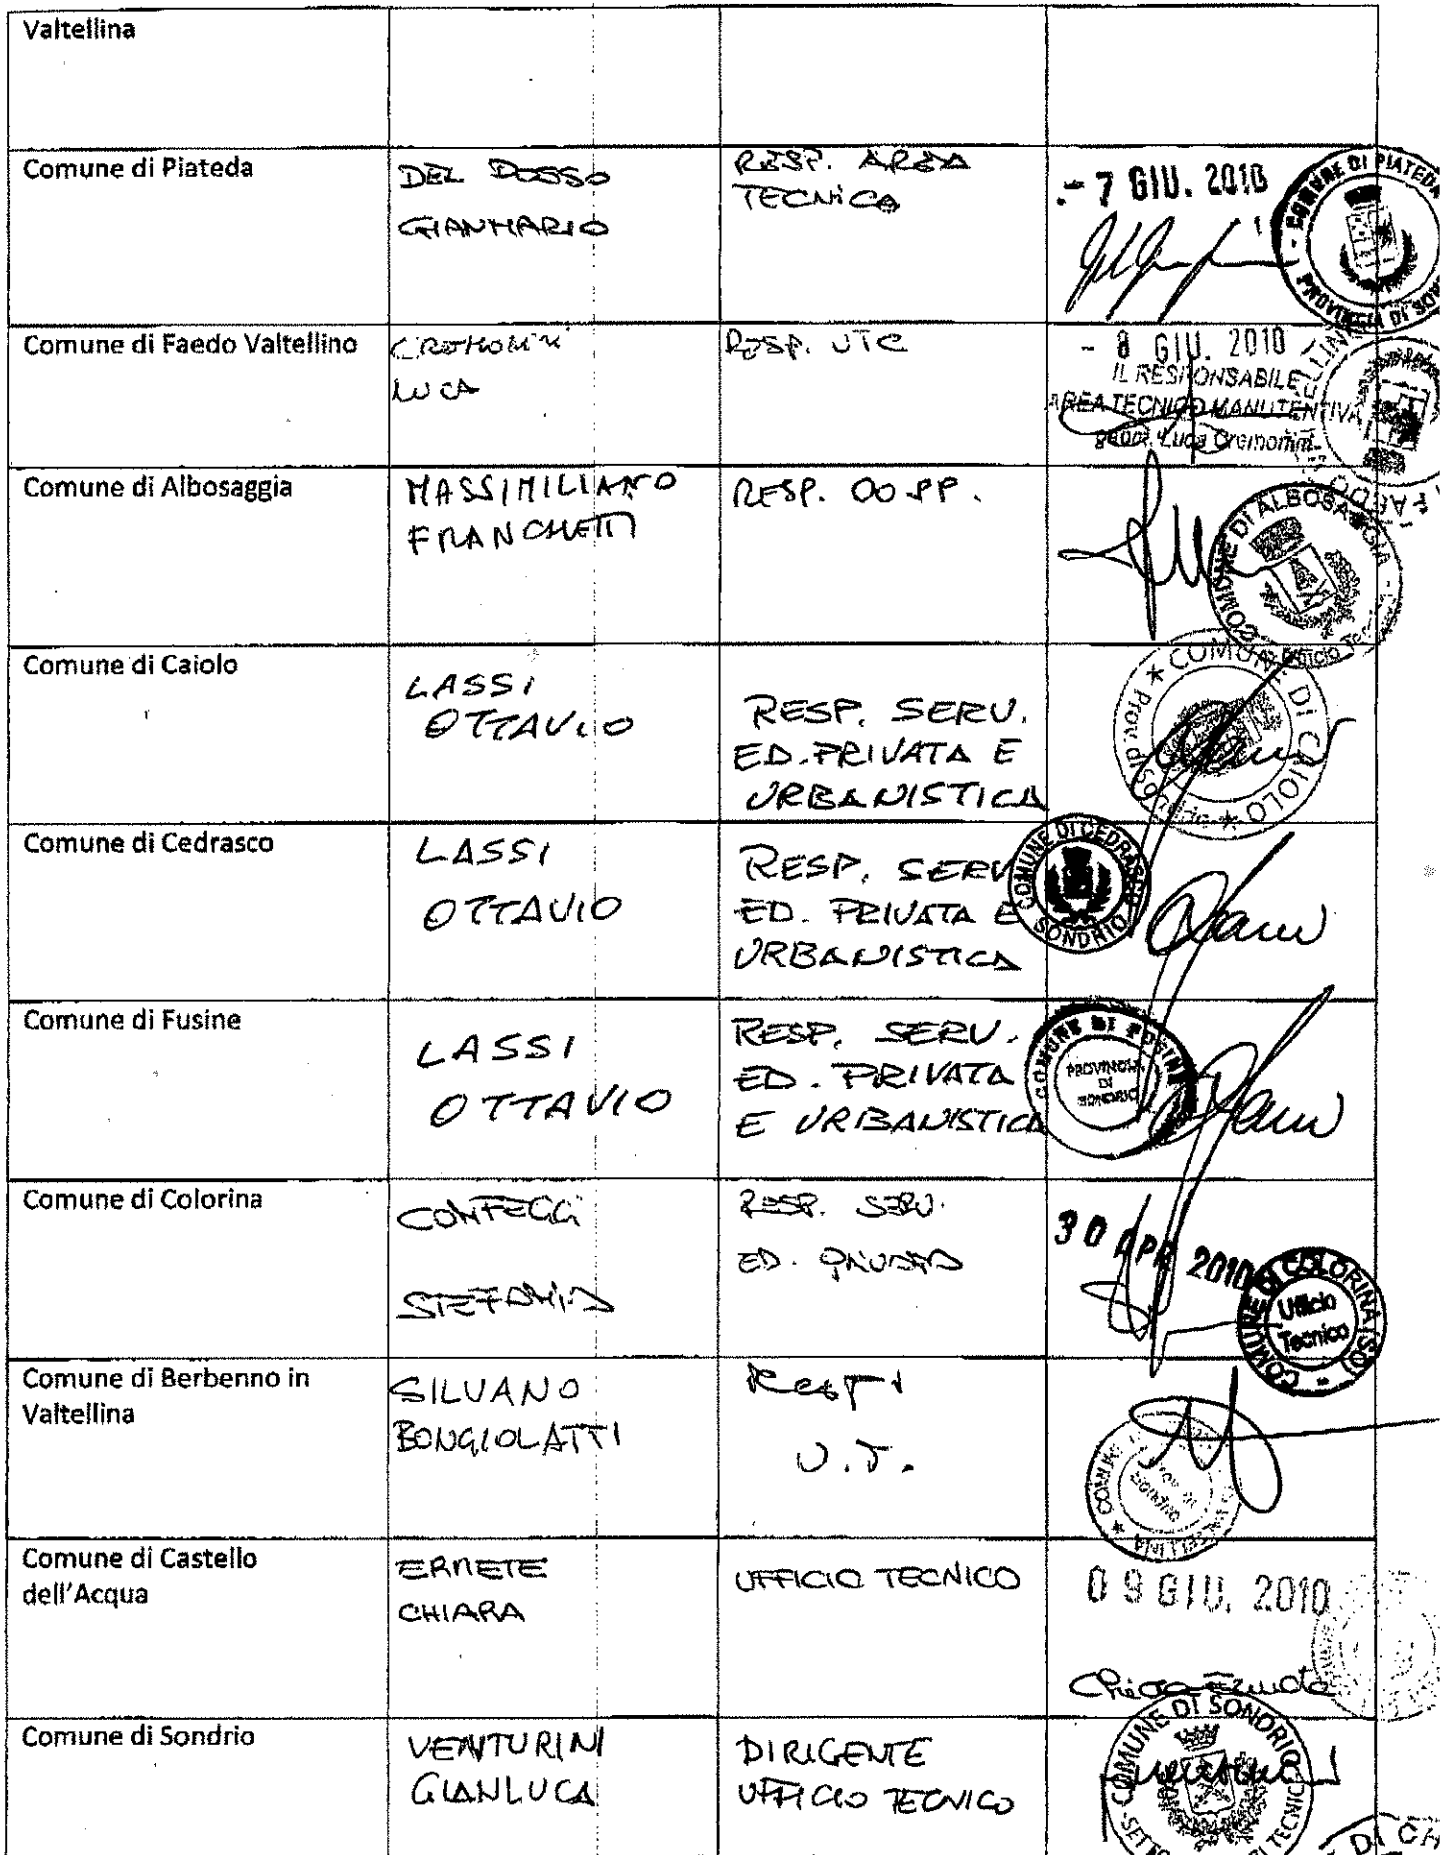 Valtellina
Comune di Piateda
DEL DOSSO
GIANMARIO
RESP. AREA
TECNICA
- 7 GIU. 2010
COMUNE DI PIATEDA
PROVINCIA DI SON
Comune di Faedo Valtellino
CREMONINI
LUCA
RESP. UTC
- 8 GIU. 2010
IL RESPONSABILE
AREA TECNICO MANUTENTIVA
geom. Luca Cremonini
Comune di Albosaggia
MASSIMILIANO
FRANCHETTI
RESP. OO.PP.
COMUNE DI ALBOSAGGIA
Comune di Caiolo
LASSI
OTTAVIO
RESP. SERV.
ED. PRIVATA E
URBANISTICA
COMUNE DI CAIOLO
Comune di Cedrasco
LASSI
OTTAVIO
RESP. SERV
ED. PRIVATA E
URBANISTICA
COMUNE DI CEDRASCO
SONDRIO
Comune di Fusine
LASSI
OTTAVIO
RESP. SERV.
ED. PRIVATA
E URBANISTICA
COMUNE DI FUSINE
PROVINCIA
DI
SONDRIO
Comune di Colorina
STEFANIA
RESP. SERV.
ED. PRIVATA
30 APR 2010
COMUNE DI COLORINA (SO)
Ufficio
Tecnico
Comune di Berbenno in
Valtellina
SILVANO
BONGIOLATTI
U.T.
Comune di Castello
dell'Acqua
ERMETE
CHIARA
UFFICIO TECNICO
09 GIU. 2010
Comune di Sondrio
VENTURINI
GIANLUCA
DIRIGENTE
UFFICIO TECNICO
COMUNE DI SONDRIO